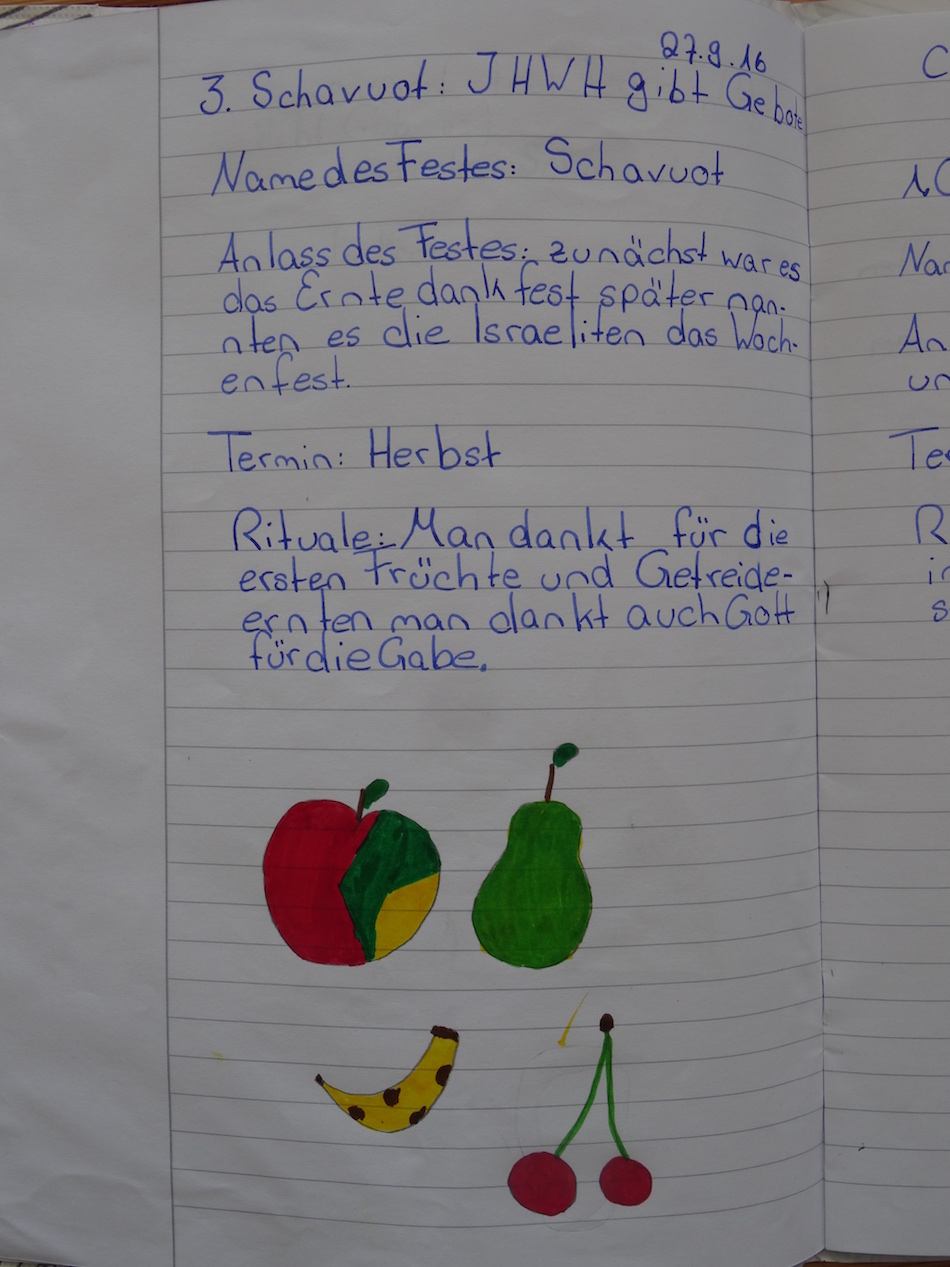 27.9.16
3. Schavuot: JHWH gibt Gebote
Name des Festes: Schavuot
Anlass des Festes: zunächst war es
das Erntedankfest später nan-
nten es die Israeliten das Woch-
enfest.
Termin: Herbst
Rituale: Man dankt für die
ersten Früchte und Getreide-
ernten man dankt auch Gott
für die Gabe.
C
Na
An
un
Te
R
in
s